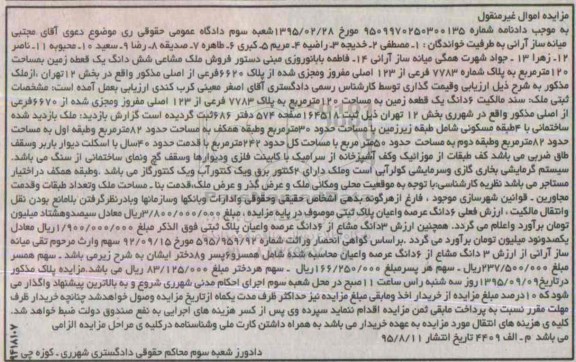 مزایده اموال غیرمنقول
به موجب دادنامه شماره ۹۵۰۹۹۷۰۲۵۰۳۰۰۱۳۵ مورخ ۱۳۹۵/۰۲/۲۸شعبه سوم دادگاه عمومی حقوقی ری موضوع دعوی آقای مجتبی
میانه ساز آرانی به طرفیت خواندگان : ۱ـ مصطفی ۲ـ خدیجه ۳ـ راضیه ۴ـ مریم ۵ـ کبری ۶ـ طاهره ۷ـ صدیقه ۸ـ رضا ۹ـ سعید ۱۰ـ محبوبه ۱۱ـ ناصر
۱۲ـ زهرا ۱۳ـ جواد شهرت همگی میانه ساز آرانی ۱۴ـ فاطمه باباانوروزی مبنی دستور فروش ملک مشاعی شش دانگ یک قطعه زمین بمساحت
۱۲۰مترمربع به پلاک شماره ۷۷۸۳ فرعی از ۱۲۳ اصلی مفروز ومجزی شده از پلاک ۶۶۲۰فرعی از اصلی مذکور واقع در بخش ۱۲تهران ،ازملک
مذکور به شرح ذیل ارزیابی وقیمت گذاری توسط کارشناس رسمی دادگستری آقای اصغر معینی کرب کندی ارزیابی بعمل آمده است: مشخصات
ثبتی ملک: سند مالکیت ۶دانگ یک قطعه زمین به مساحت ۱۲۰مترمربع به پلاک ۷۷۸۳ فرعی از ۱۲۳ اصلی مفروز ومجزی شده از ۶۶۷۰فرعی
از اصلی مذکور واقع در شهرری بخش ۱۲ تهران ذیل ثبت ۱۶۴۵۱۰صفحه ۵۷۴ دفتر ۶۸۶ثبت گردیده است گزارش بازدید: ملک بازدید شده
ساختمانی با ۴طبقه مسکونی شامل طبقه زیرزمین با مساحت حدود ۳۰مترمربع وطبقه همکف به مساحت حدود ۸۲مترمربع وطبقه اول به مساحت
حدود ۸۲مترمربع وطبقه دوم به مساحت حدود ۵۰متر مربع با مساحت کل حدود ۲۴۲مترمربع با قدمت حدود ۴۰سال با اسکلت دیوار باربر وسقف
طاق ضربی می باشد کف طبقات از موزائیک وکف آشپزخانه از سرامیک با کابینت فلزی ودیوارها وسقف گچ ونمای ساختمانی از سنگ می باشد.
سیستم گرمایشی بخاری گازی وسرمایشی کولرآبی است وملک دارای ۲کنتور برق ویک کنتورآب ویک کنتورگاز می باشد .وطبقه همکف دراختیار
مستاجر می باشد نظریه کارشناسی:با توجه به موقعیت محلی ومکانی ملک و عرض گذر و عرض ملک،قدمت بنا ـ مساحت ملک وتعداد طبقات وقدمت
مجاورین ـ قوانین شهرسازی موجود ـ فارغ ازهرگونه بدهی اشخاص حقیقی وحقوقی وادارات وبانکها وسازمانها وبادرنظرگرفتن بلامانع بودن نقل
وانتقال مالکیت ، ارزش فعلی ۶دانگ عرصه واعیان پلاک ثبتی موصوف در پایه مزایده ، مبلغ ۳/۸۰۰/۰۰۰/۰۰۰ریال معادل سیصدوهشتاد میلیون
تومان برآورد واعلام می گردد. همچنین ارزش ۳دانگ مشاع از ۶دانگ عرصه واعیان پلاک ثبتی فوق الذکر مبلغ ۱/۹۰۰/۰۰۰/۰۰۰ریال معادل
یکصدونود میلیون تومان برآورد می گردد .براساس گواهی انحصار وراثت شماره ۵۹۵/۹۵۹/۹۲ مورخ ۹۲/۰۹/۱۵ سهم وارث مرحوم تقی میانه
ساز آرانی از ارزش ۳ دانگ مشاع از ۶دانگ عرصه واعیان محاسبه شده شامل همسرو۶پسر و۸دختر ایشان به شرح زیرمی باشد ـ سهم همسر
مبلغ ۲۳۷/۵۰۰/۰۰۰ریال ـ سهم هر پسرمبلغ ۱۶۶/۲۵۰/۰۰۰ریال ـ سهم هردختر مبلغ ۸۳/۱۲۵/۰۰۰ ریال می باشد مزایده پلاک مذکور
درتاریخ۱۳۹۵/۰۹/۰۹ روز سه شنبه راس ساعت ۱۱صبح در محل شعبه سوم اجرای احکام مدنی شهرری شروع و به بالاترین پیشنهاد واگذار می
شود که ۱۰درصد مبلغ مزایده از خریدار اخذ ومابقی مبلغ مزایده نیز حداکثر ظرف مدت یکماه ازتاریخ مزایده وصول خواهدشد چنانچه خریدار ظرف
مهلت مقرر نسبت به پرداخت مابقی ثمن مزایده اقدام ننماید سپرده وی پس از کسر هزینه های اجرایی به نفع صندوق دولت ضبط خواهد شد.
کلیه ی هزینه های انتقال مورد مزایده به عهده خریدار می باشد به همراه داشتن کارت ملی وشناسنامه درکلیه ی مراحل مزایده الزامی
می باشد م ـ الف ۴۴۰۹ تاریخ انتشار ۹۵/۸/۱۱
دادورز شعبه سوم محاکم حقوقی دادگستری شهرری ـ کوزه چی